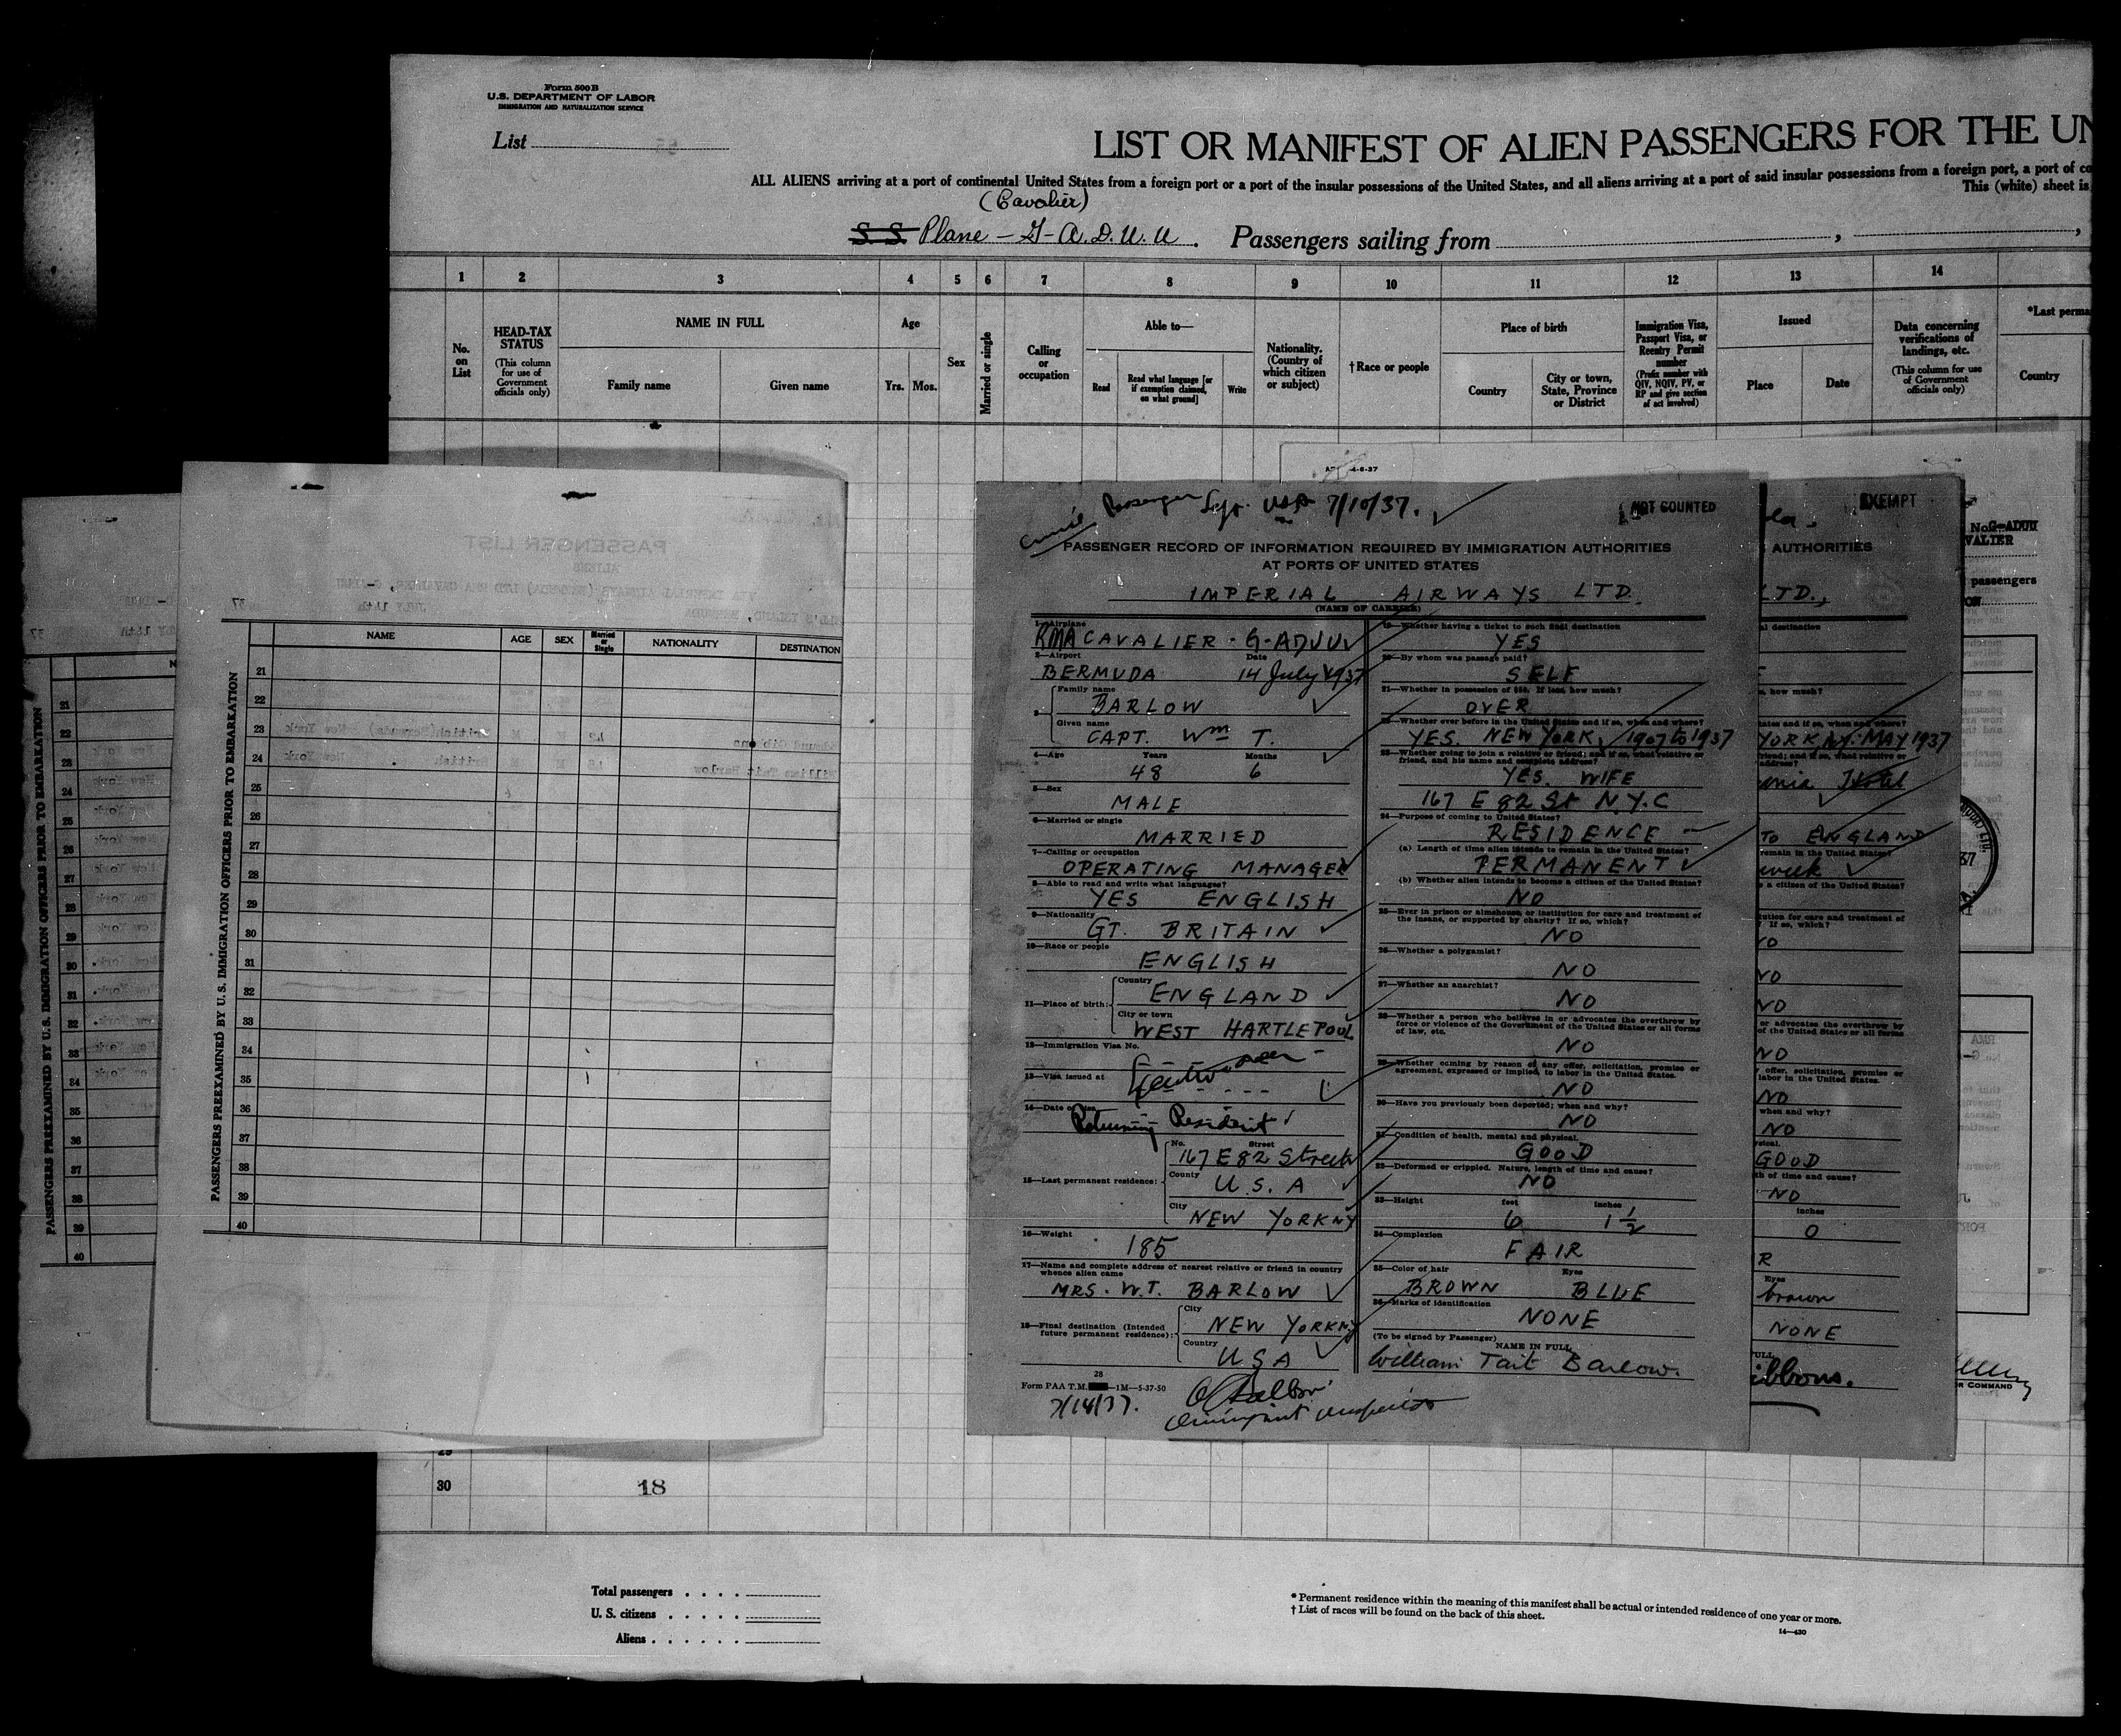 Form 500 B
U.S. DEPARTMENT OF LABOR
IMMIGRATION AND NATURALIZATION SERVICE
List
LIST OR MANIFEST OF ALIEN PASSENGERS FOR THE UN
ALL ALIENS arriving at a port of continental United States from a foreign port or a port of the insular possessions of the United States, and all aliens arriving at a port of said insular possessions from a foreign port, a port of co
This (white) sheet is
(Cavalier)
S S Plane - G-A.D.U.U. Passengers sailing from
1 2 3 4 5 6 7 8 9 10 11 12 13 14
No. on List
HEAD-TAX STATUS
(This column for use of Government officials only)
NAME IN FULL
Family name Given name
Age
Yrs. Mos.
Sex
Married or single
Calling or occupation
Able to—
Read
Read what language [or if exemption claimed, on what ground]
Write
Nationality. (Country of which citizen or subject)
†Race or people
Place of birth
Country
City or town, State, Province or District
Immigration Visa, Passport Visa, or Reentry Permit number
(Prefix number with QIV, NQIV, PV, or RP and give section of act involved)
Issued
Place Date
Data concerning verifications of landings, etc.
(This column for use of Government officials only)
*Last perma
Country
PASSENGERS PREEXAMINED BY U.S. IMMIGRATION OFFICERS PRIOR TO EMBARKATION
21
22
23
24
25
26
27
28
29
30
31
32
33
34
35
36
37
38
39
40
PASSENGERS PREEXAMINED BY U.S. IMMIGRATION OFFICERS PRIOR TO EMBARKATION
PASSENGER LIST
ALIENS
NAME AGE SEX Married or Single NATIONALITY DESTINATION
21
22
23
24
25
26
27
28
29
30
31
32
33
34
35
36
37
38
39
40
Passenger Dept. USA 7/10/37.
NOT COUNTED
PASSENGER RECORD OF INFORMATION REQUIRED BY IMMIGRATION AUTHORITIES
AT PORTS OF UNITED STATES
IMPERIAL AIRWAYS LTD.
(NAME OF CARRIER)
1—Airplane
RMA CAVALIER - G-ADUU
2—Airport Date
BERMUDA 14 July 1937
3—
Family name
BARLOW
Given name
CAPT. Wm T.
4—Age Years Months
48 6
5—Sex
MALE
6—Married or single
MARRIED
7—Calling or occupation
OPERATING MANAGER
8—Able to read and write what languages?
YES ENGLISH
9—Nationality
GT. BRITAIN
10—Race or people
ENGLISH
11—Place of birth:
Country
ENGLAND
City or town
WEST HARTLEPOOL
12—Immigration Visa No.
13—Visa issued at
14—Date of visa
Returning Resident
15—Last permanent residence:
No. Street
167 E 82 Street
County
U.S.A
City
NEW YORK NY
16—Weight
185
17—Name and complete address of nearest relative or friend in country whence alien came
MRS. W.T. BARLOW
18—Final destination (Intended future permanent residence):
City
NEW YORK NY
Country
USA
28
Form PAA T.M. —1M—5-37-50
7/14/37.
19—Whether having a ticket to such final destination
YES
20—By whom was passage paid?
SELF
21—Whether in possession of $50. If less, how much?
OVER
22—Whether ever before in the United States and if so, when and where?
YES. NEW YORK 1907 to 1937
23—Whether going to join a relative or friend; and if so, what relative or friend, and his name and complete address?
YES. WIFE
167 E 82 St N.Y.C
24—Purpose of coming to United States?
RESIDENCE
(a) Length of time alien intends to remain in the United States?
PERMANENT
(b) Whether alien intends to become a citizen of the United States?
NO
25—Ever in prison or almshouse or institution for care and treatment of the insane, or supported by charity? If so, which?
NO
26—Whether a polygamist?
NO
27—Whether an anarchist?
NO
28—Whether a person who believes in or advocates the overthrow by force or violence of the Government of the United States or all forms of law, etc.
NO
29—Whether coming by reason of any offer, solicitation, promise or agreement, expressed or implied, to labor in the United States.
NO
30—Have you previously been deported; when and why?
NO
31—Condition of health, mental and physical.
GOOD
32—Deformed or crippled. Nature, length of time and cause?
NO
33—Height feet inches
6 1 1/2
34—Complexion
FAIR
35—Color of hair Eyes
BROWN BLUE
36—Marks of identification
NONE
(To be signed by Passenger)
NAME IN FULL
William Tait Barlow.
EXEMPT
AUTHORITIES
LTD.,
al destination
how much?
tates and if so, when and where?
YORK, N.Y. MAY 1937
TO ENGLAND
remain in the United States?
week
a citizen of the United States?
tution for care and treatment of
If so, which?
NO
NO
NO
or advocates the overthrow by
of the United States or all forms
NO
offer, solicitation, promise or
labor in the United States.
NO
when and why?
NO
GOOD
th of time and cause?
NO
inches
0
R
Eyes
brown
NONE
FULL
ibbons.
No. G-ADUU
VALIER
passengers
R COMMAND
30
18
Total passengers
U. S. citizens
Aliens
* Permanent residence within the meaning of this manifest shall be actual or intended residence of one year or more.
† List of races will be found on the back of this sheet.
14—430